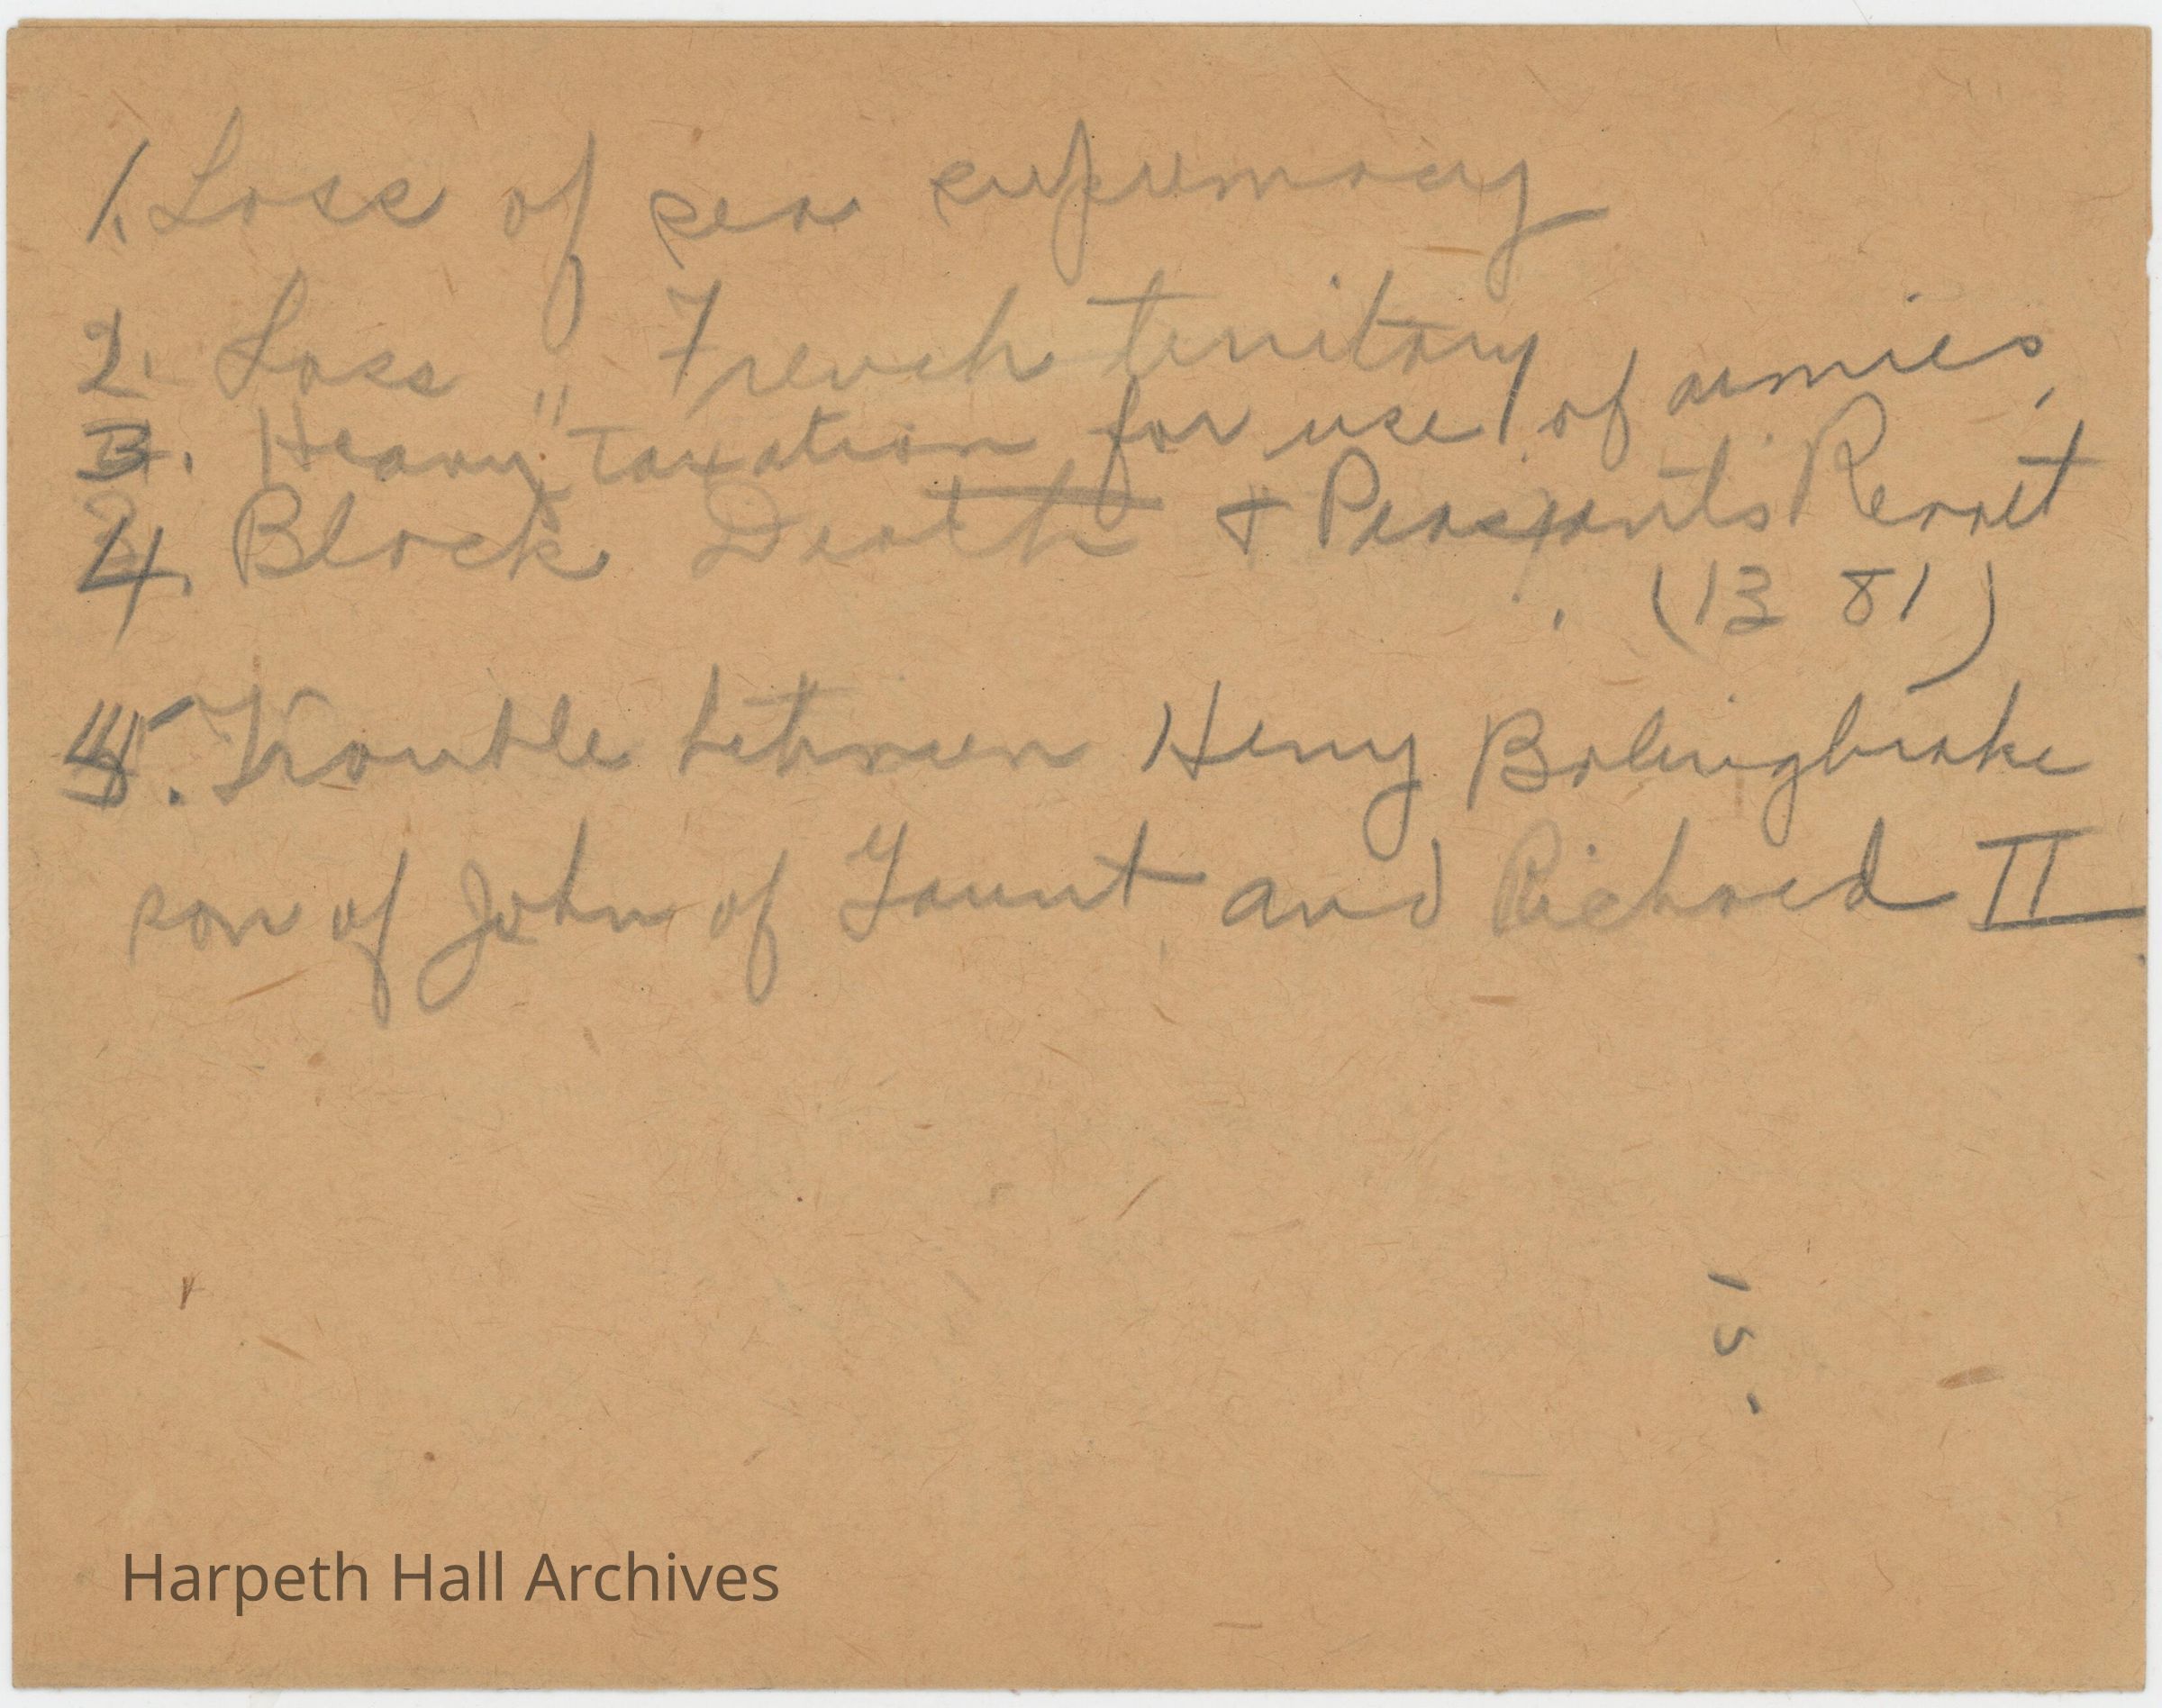 1. Loss of sea supremacy
2. Loss " French territory
3. Heavy taxation for use of armies,
4. Black Death & Peasants' Revolt
(1381)
5. Trouble between Henry Bolingbroke
son of John of Gaunt and Richard II
Harpeth Hall Archives